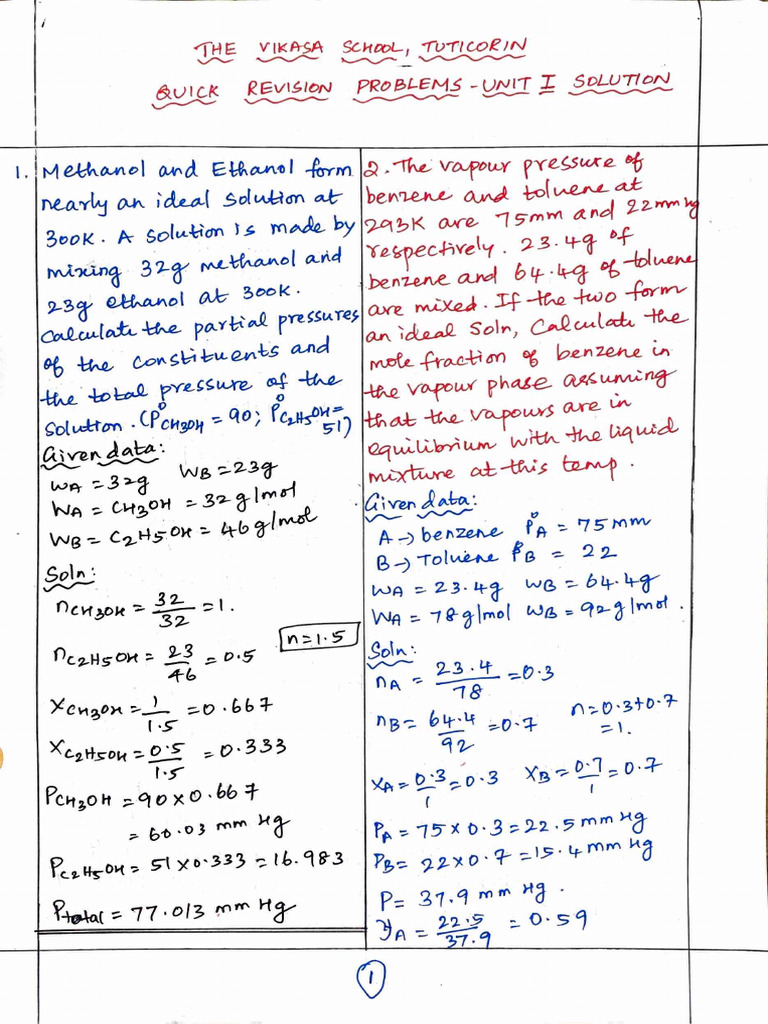 THE VIKASA SCHOOL, TUTICORIN
QUICK REVISION PROBLEMS - UNIT I SOLUTION
1. Methanol and Ethanol form
nearly an ideal solution at
300K. A solution is made by
mixing 32g methanol and
23g ethanol at 300K.
Calculate the partial pressures
of the constituents and
the total pressure of the
solution. (P°CH3OH = 90; P°C2H5OH =
51)
Given data:
WA = 32g WB = 23g
WA = CH3OH = 32 g/mol
WB = C2H5OH = 46 g/mol
Soln:
nCH3OH = 32/32 = 1.
n = 1.5
nC2H5OH = 23/46 = 0.5
XCH3OH = 1/1.5 = 0.667
XC2H5OH = 0.5/1.5 = 0.333
PCH3OH = 90 x 0.667
= 60.03 mm Hg
PC2H5OH = 51 x 0.333 = 16.983
Ptotal = 77.013 mm Hg
2. The vapour pressure of
benzene and toluene at
293K are 75mm and 22mm Hg
respectively. 23.4g of
benzene and 64.4g of toluene
are mixed. If the two form
an ideal soln, Calculate the
mole fraction of benzene in
the vapour phase assuming
that the vapours are in
equilibrium with the liquid
mixture at this temp.
Given data:
A → benzene P°A = 75 mm
B → Toluene P°B = 22
WA = 23.4g WB = 64.4g
WA = 78 g/mol WB = 92 g/mol.
Soln:
nA = 23.4/78 = 0.3
nB = 64.4/92 = 0.7 n = 0.3 + 0.7
= 1.
XA = 0.3/1 = 0.3 XB = 0.7/1 = 0.7
PA = 75 x 0.3 = 22.5 mm Hg
PB = 22 x 0.7 = 15.4 mm Hg
P = 37.9 mm Hg.
yA = 22.5/37.9 = 0.59
1